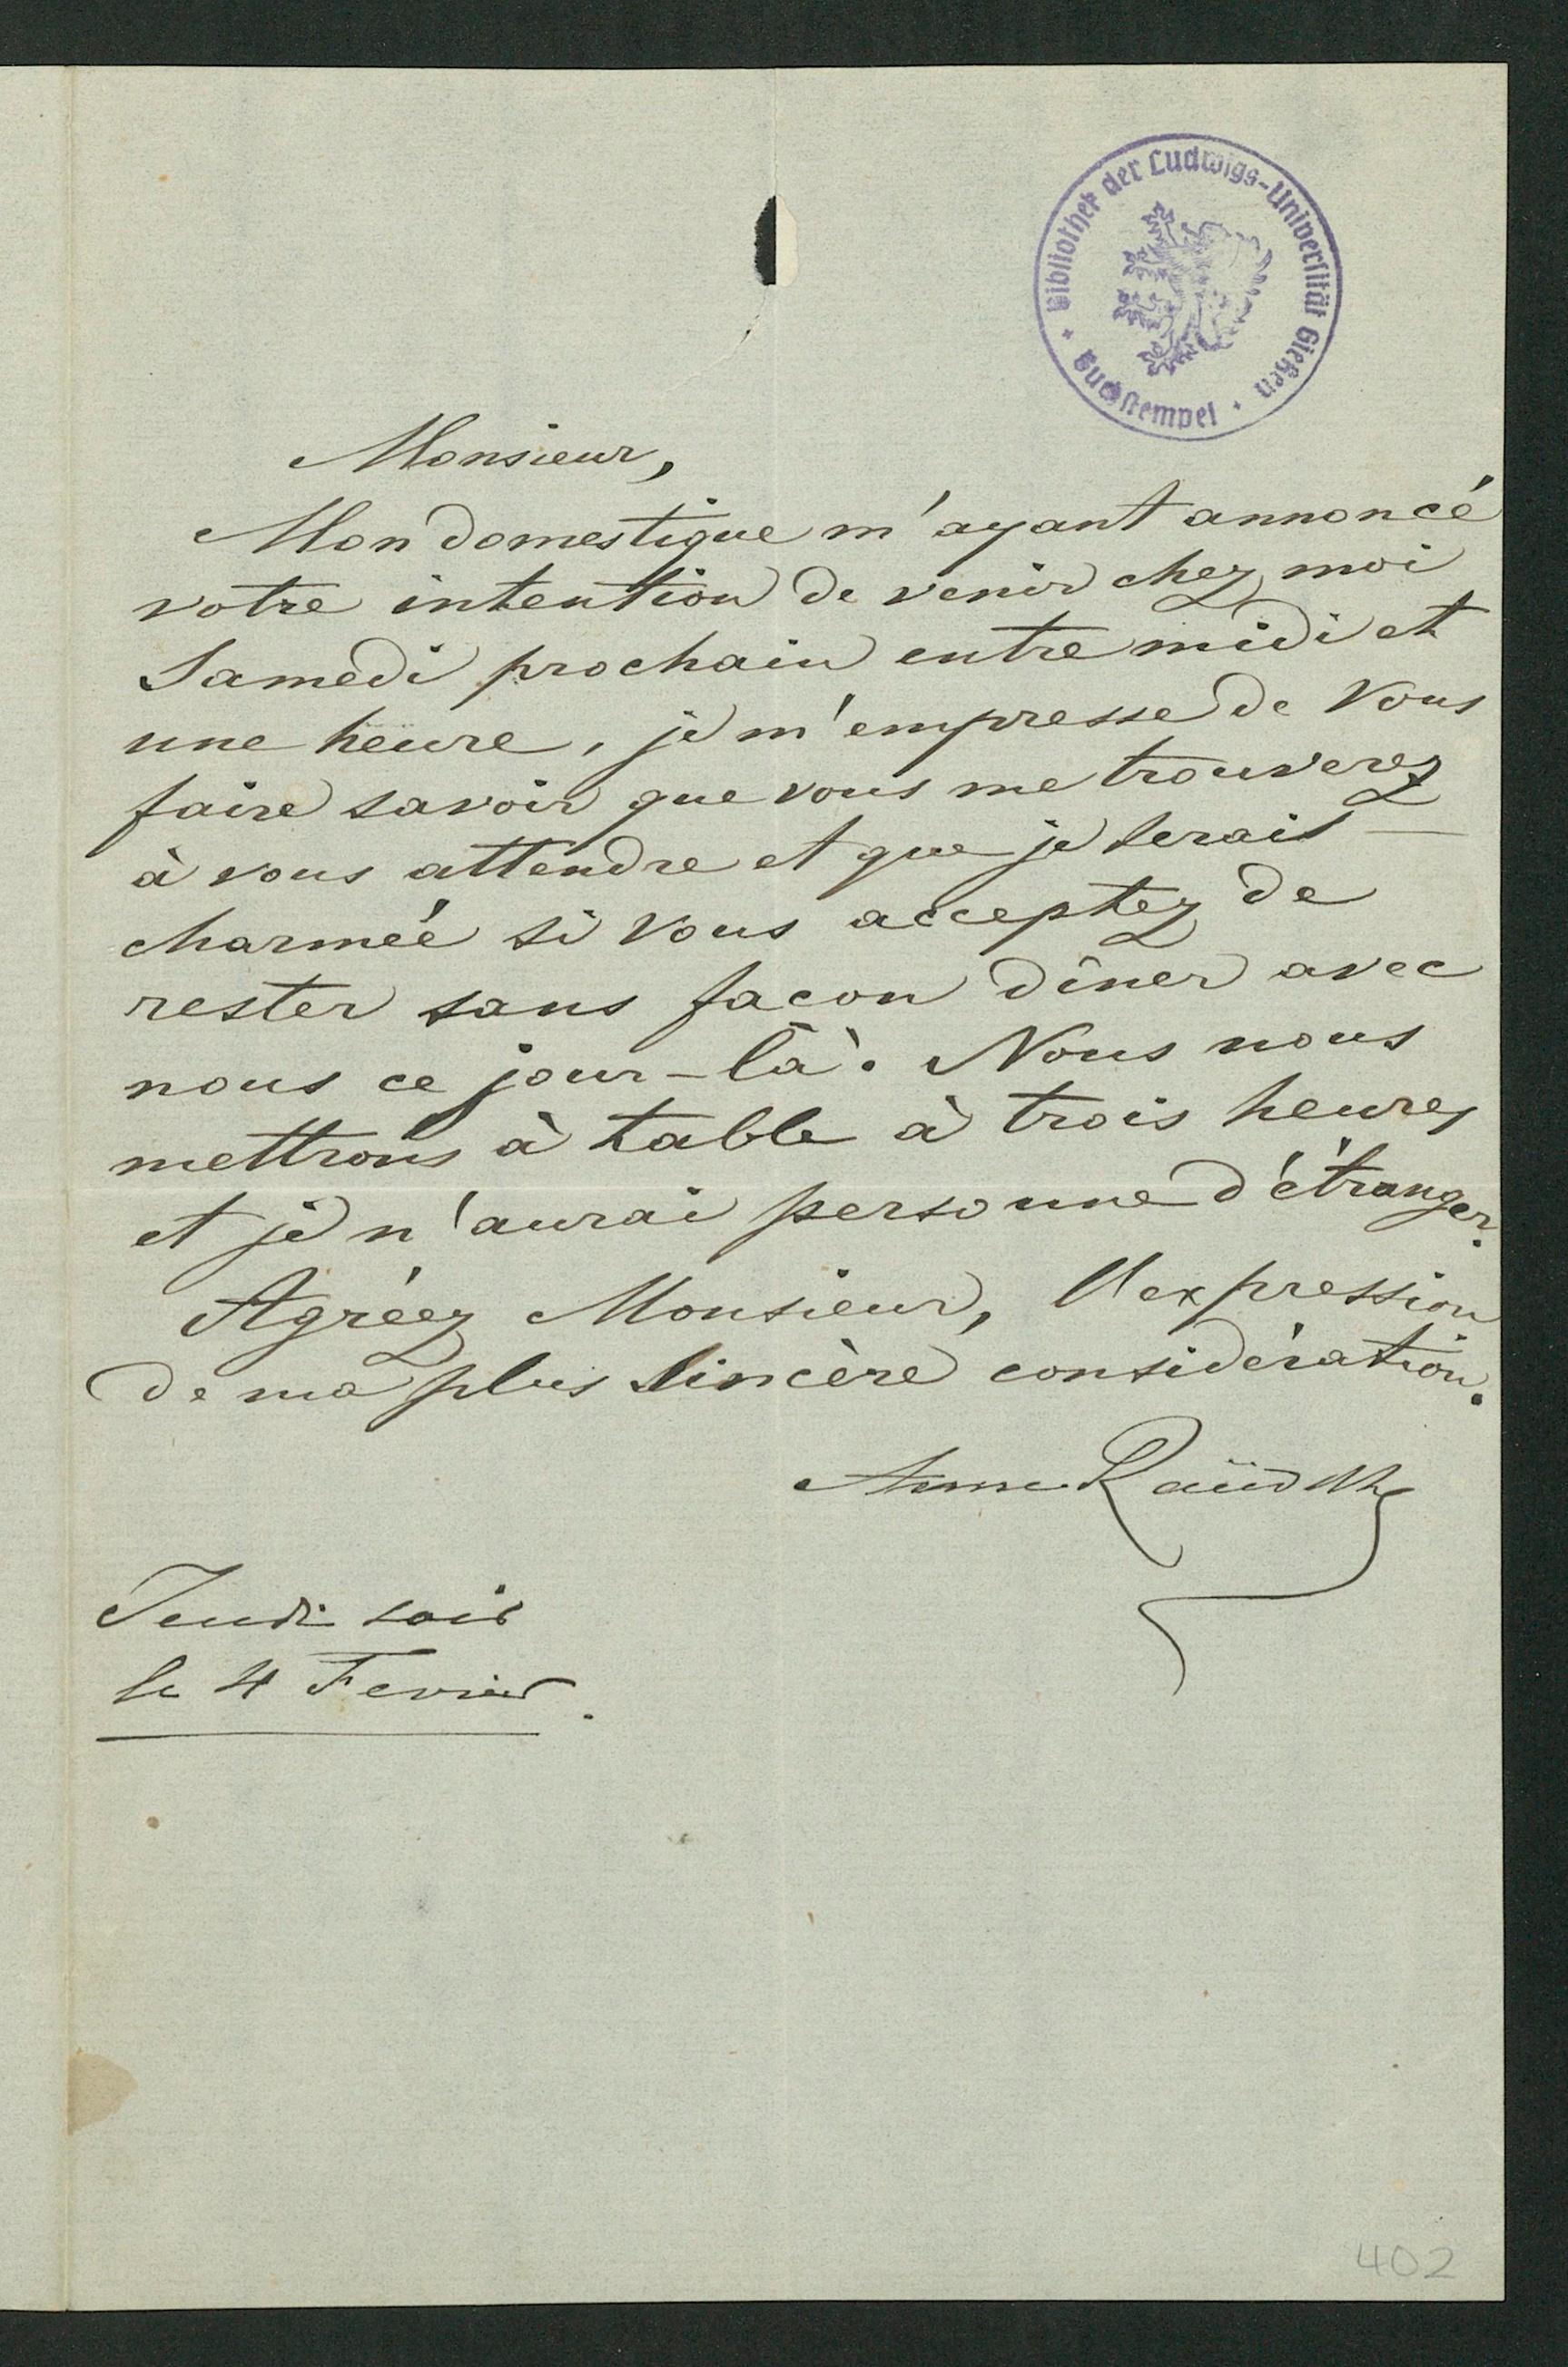 Bibliothek der Ludwigs-Universität Gießen
Buchstempel
Monsieur,
Mon domestique m'ayant annoncé
votre intention de venir chez moi
Samedi prochain entre midi et
une heure, je m'empresse de vous
faire savoir que vous me trouverez
à vous attendre et que je serais
charmée si vous acceptez de
rester sans facon dîner avec
nous ce jour-là. Nous nous
mettrons à table à trois heures
et je n'aurai personne d'étranger.
Agréez Monsieur, l'expression
de ma plus sincère considération.
Anne
Jeudi soir
le 4 Fevrier.
402